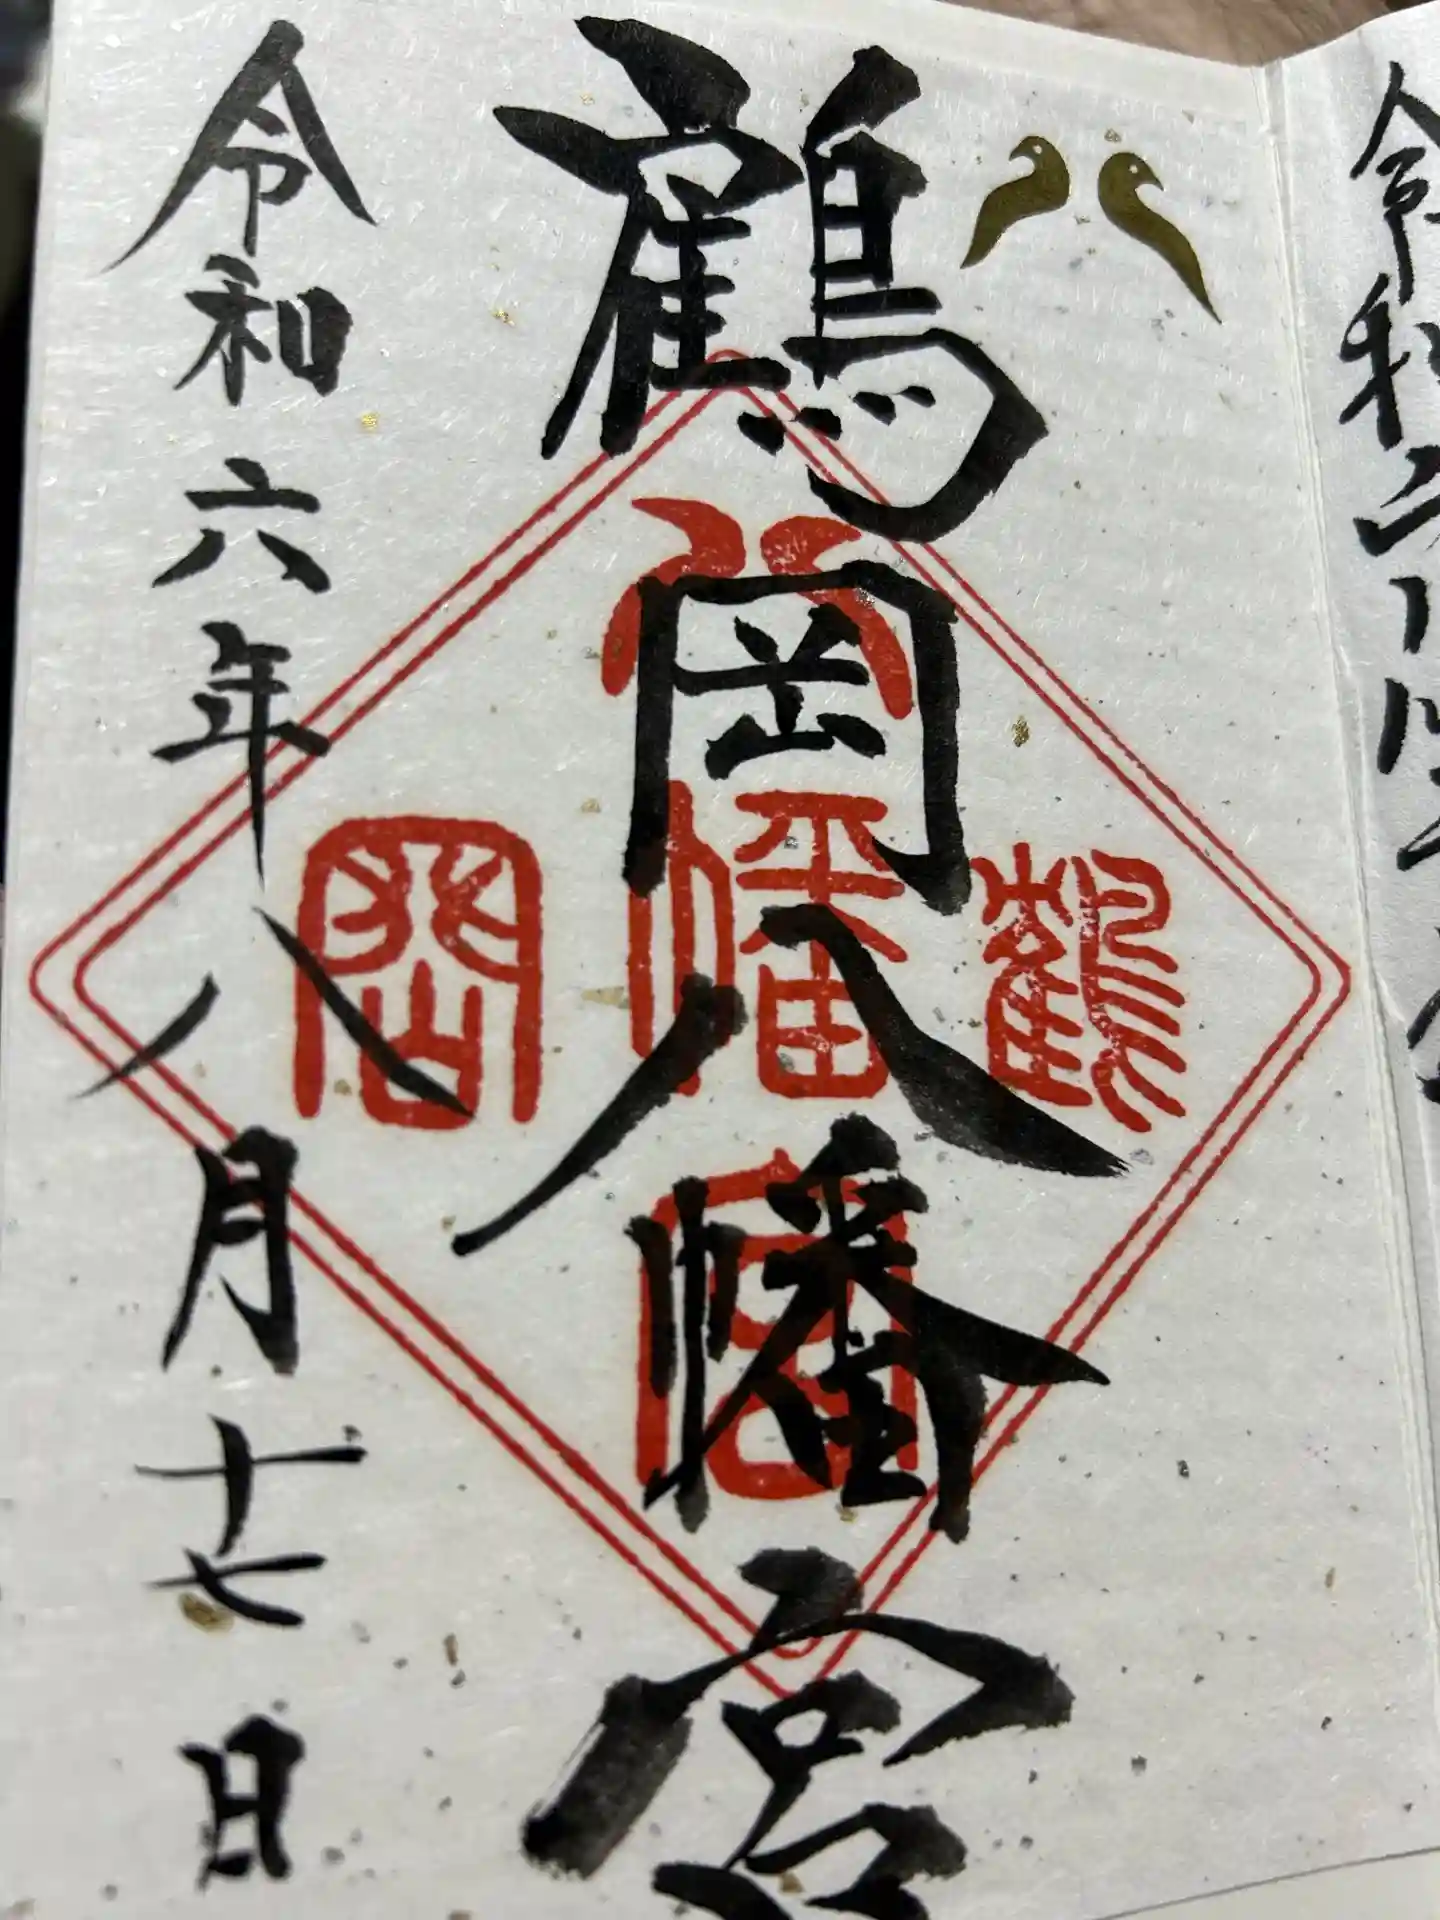 令和
鶴岡八幡宮
鶴
八幡宮
岡
令和六年八月十七日